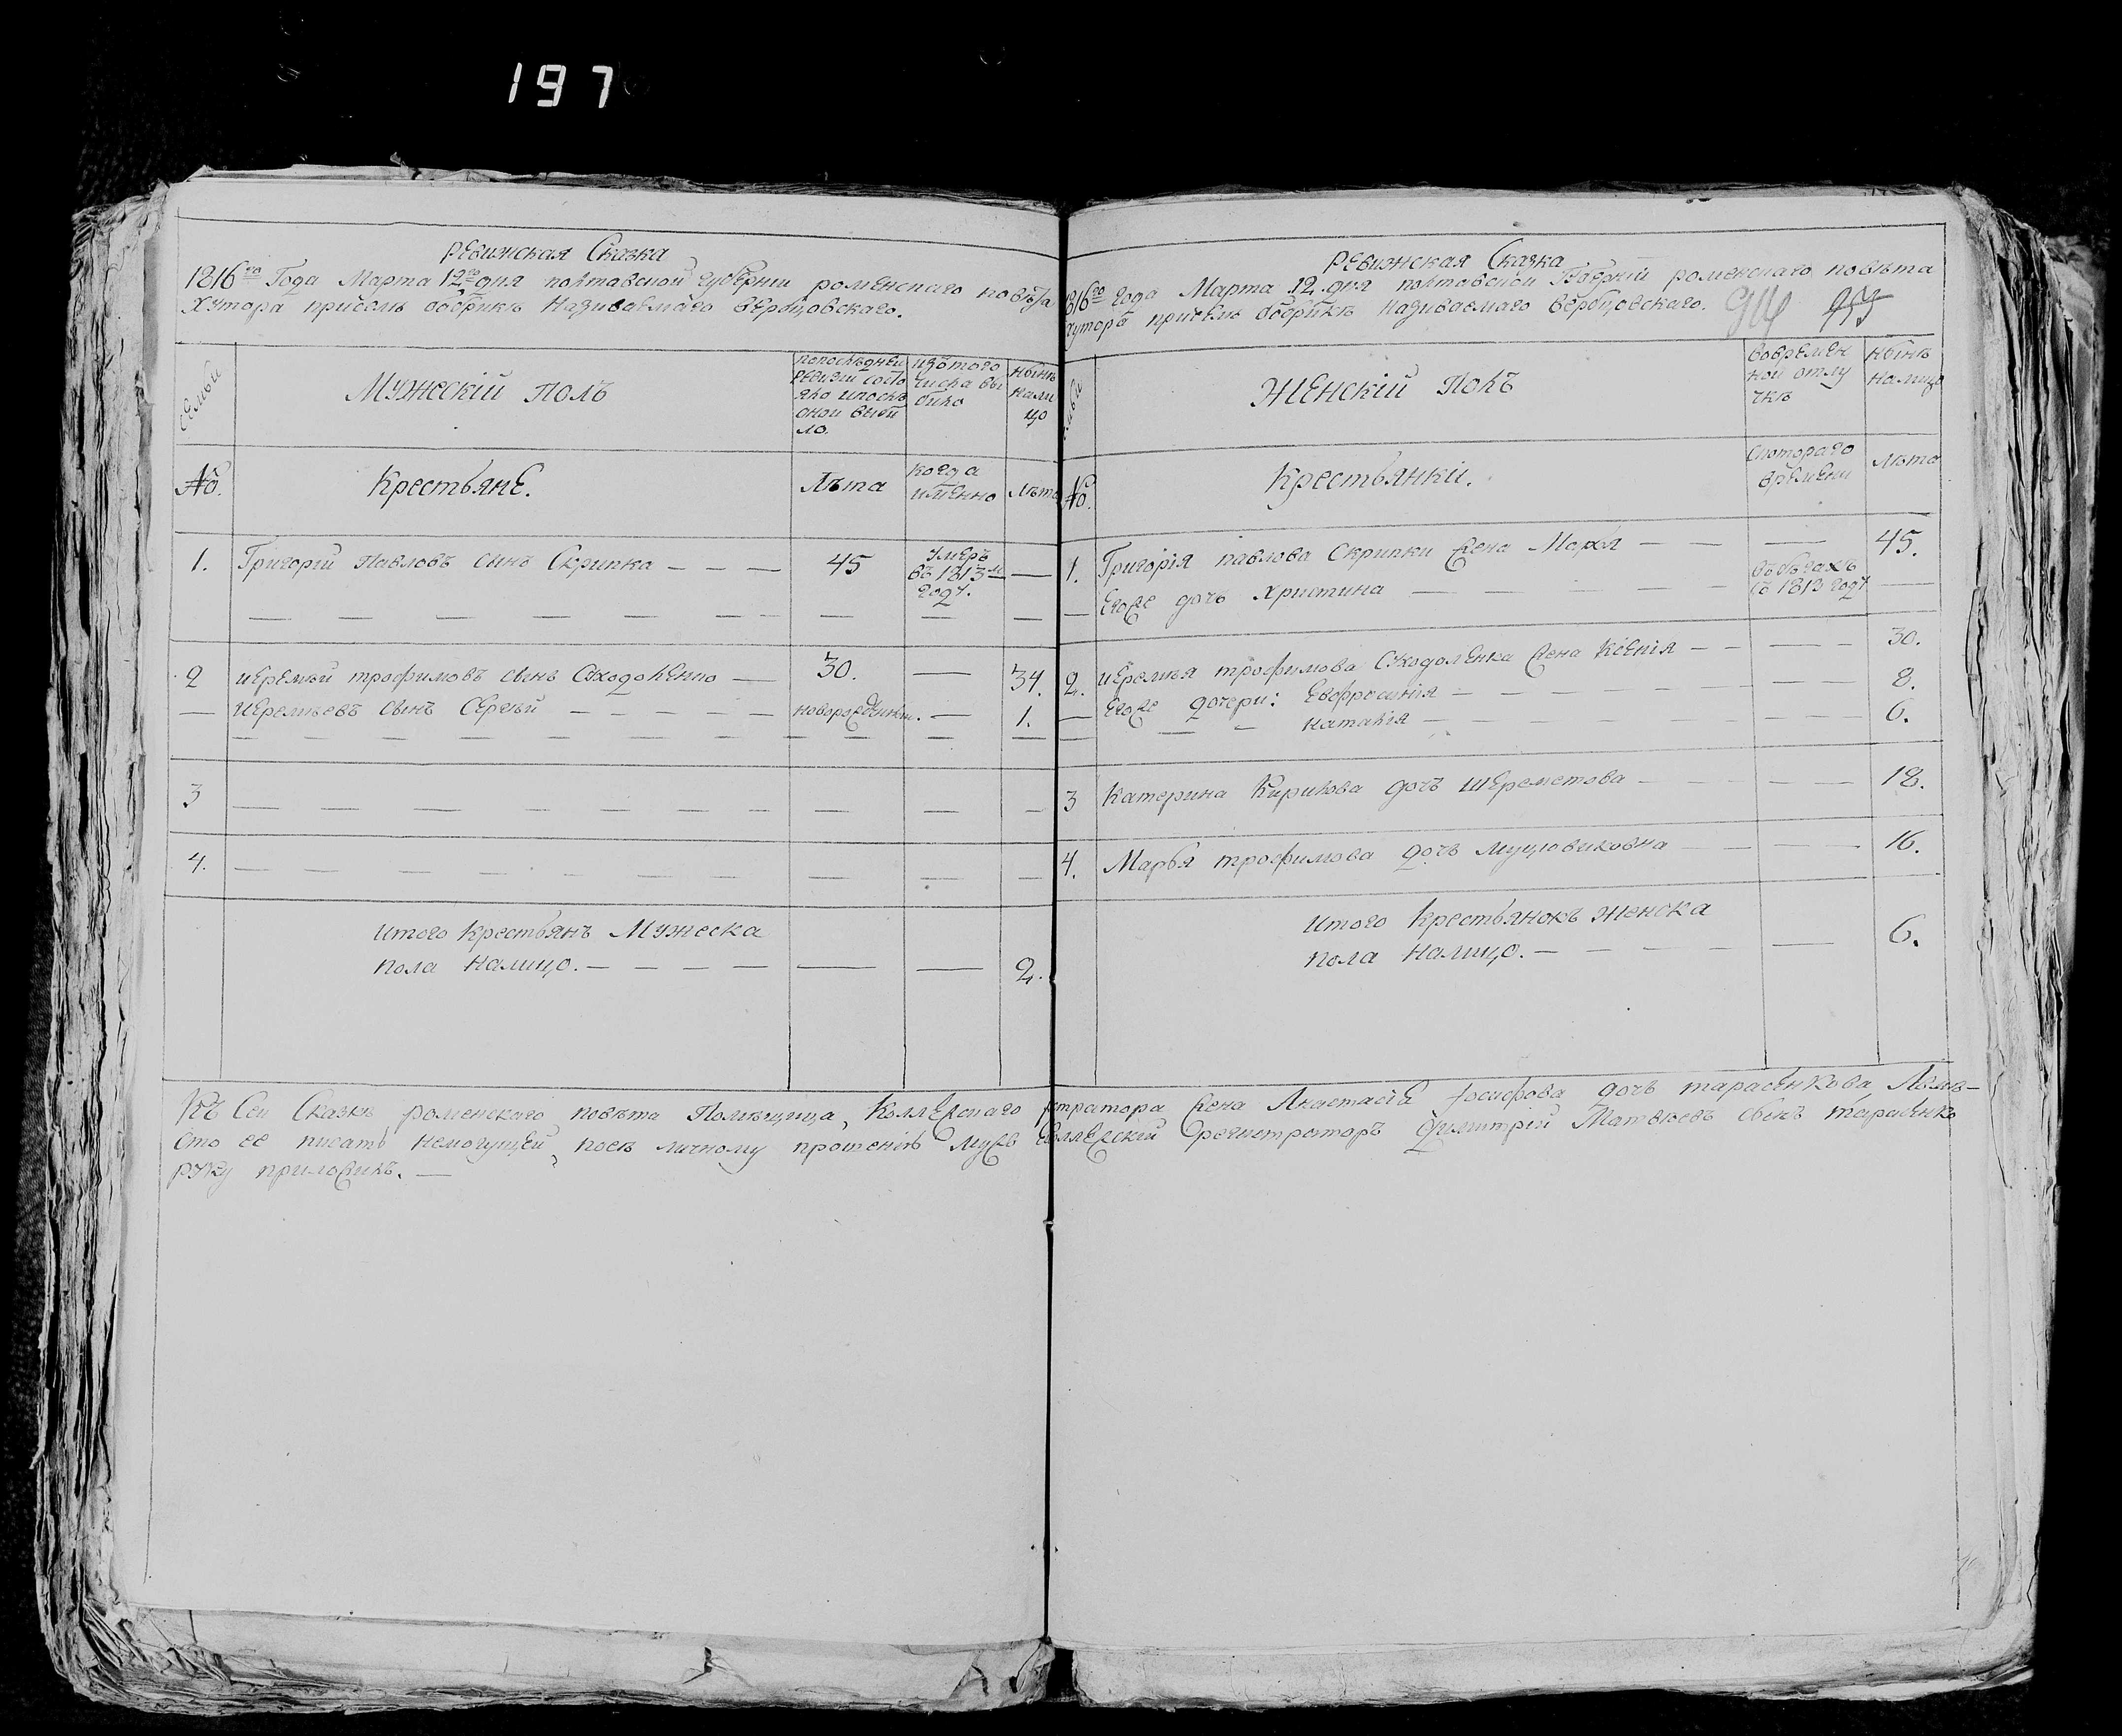 197
Ревижская Сказка
1816го Года Марта 12го дня полтавской губернии роменского повѣта
Хутора присель бобрикѣ Називаемого вербцовского.
Семьи
Мужескій полъ
попослѣдней
ревизіи состо
яло ипослѣ
оной выбы
ло.
изътого
числа вы
било
нынѣ
нали
цо
№.
Крестьяне.
Лѣта
когда
именно
Лѣта
1. Григорій Павловъ сынъ Скрипка — — — 45 Умеръ
въ 1813м
году. —
2 иеремѣй трофимовъ сынъ Сходоленко — 30. — 34.
— Иеремѣевъ сынъ Сергѣй — — — — новорожденъ. — 1.
3
4.
Итого Крестьянъ Мужеска
пола налицо. — — — — — — 2.
Ревижская Сказка
1816го года Марта 12. дня полтавской Губерніи роменского повѣта
хутора присель бобрикѣ Називаемаго вербцовского.
Женскій Полъ
вовремен
ной отлу
чкѣ
нынѣ
налицо
№.
Крестьянки.
Скотораго
времени
Лѣта
1. Григорія павлова Скрипки жена Марѳя — — — 45.
— Егоже дочь Христина — — — — Въбѣгахъ
Со 1813 году —
2. иеремѣя трофимова Сходоленка жена Ксенія — — — — 30.
— Егоже дочери: Евфросинія — — — — — — — 8.
— — Наталія — — — — — — — 6.
3 Катерина Кирилова дочь Шереметова — — — — 18.
4. Марья трофимова дочь муцовиковна — — — — 16.
Итого Крестьянокъ женска
пола налицо. — — — — — 6.
Къ Сей Сказкѣ роменского повѣта Помѣщица, Коллежского жена Анастасія Іосифова дочь тарасенкова Авмѣ—
сто ее писать немогущей, поея личному прошенію мужъ Коллежскій регистраторъ Димитрій Матвѣевъ сынъ тарасенко
руку приложилъ. —